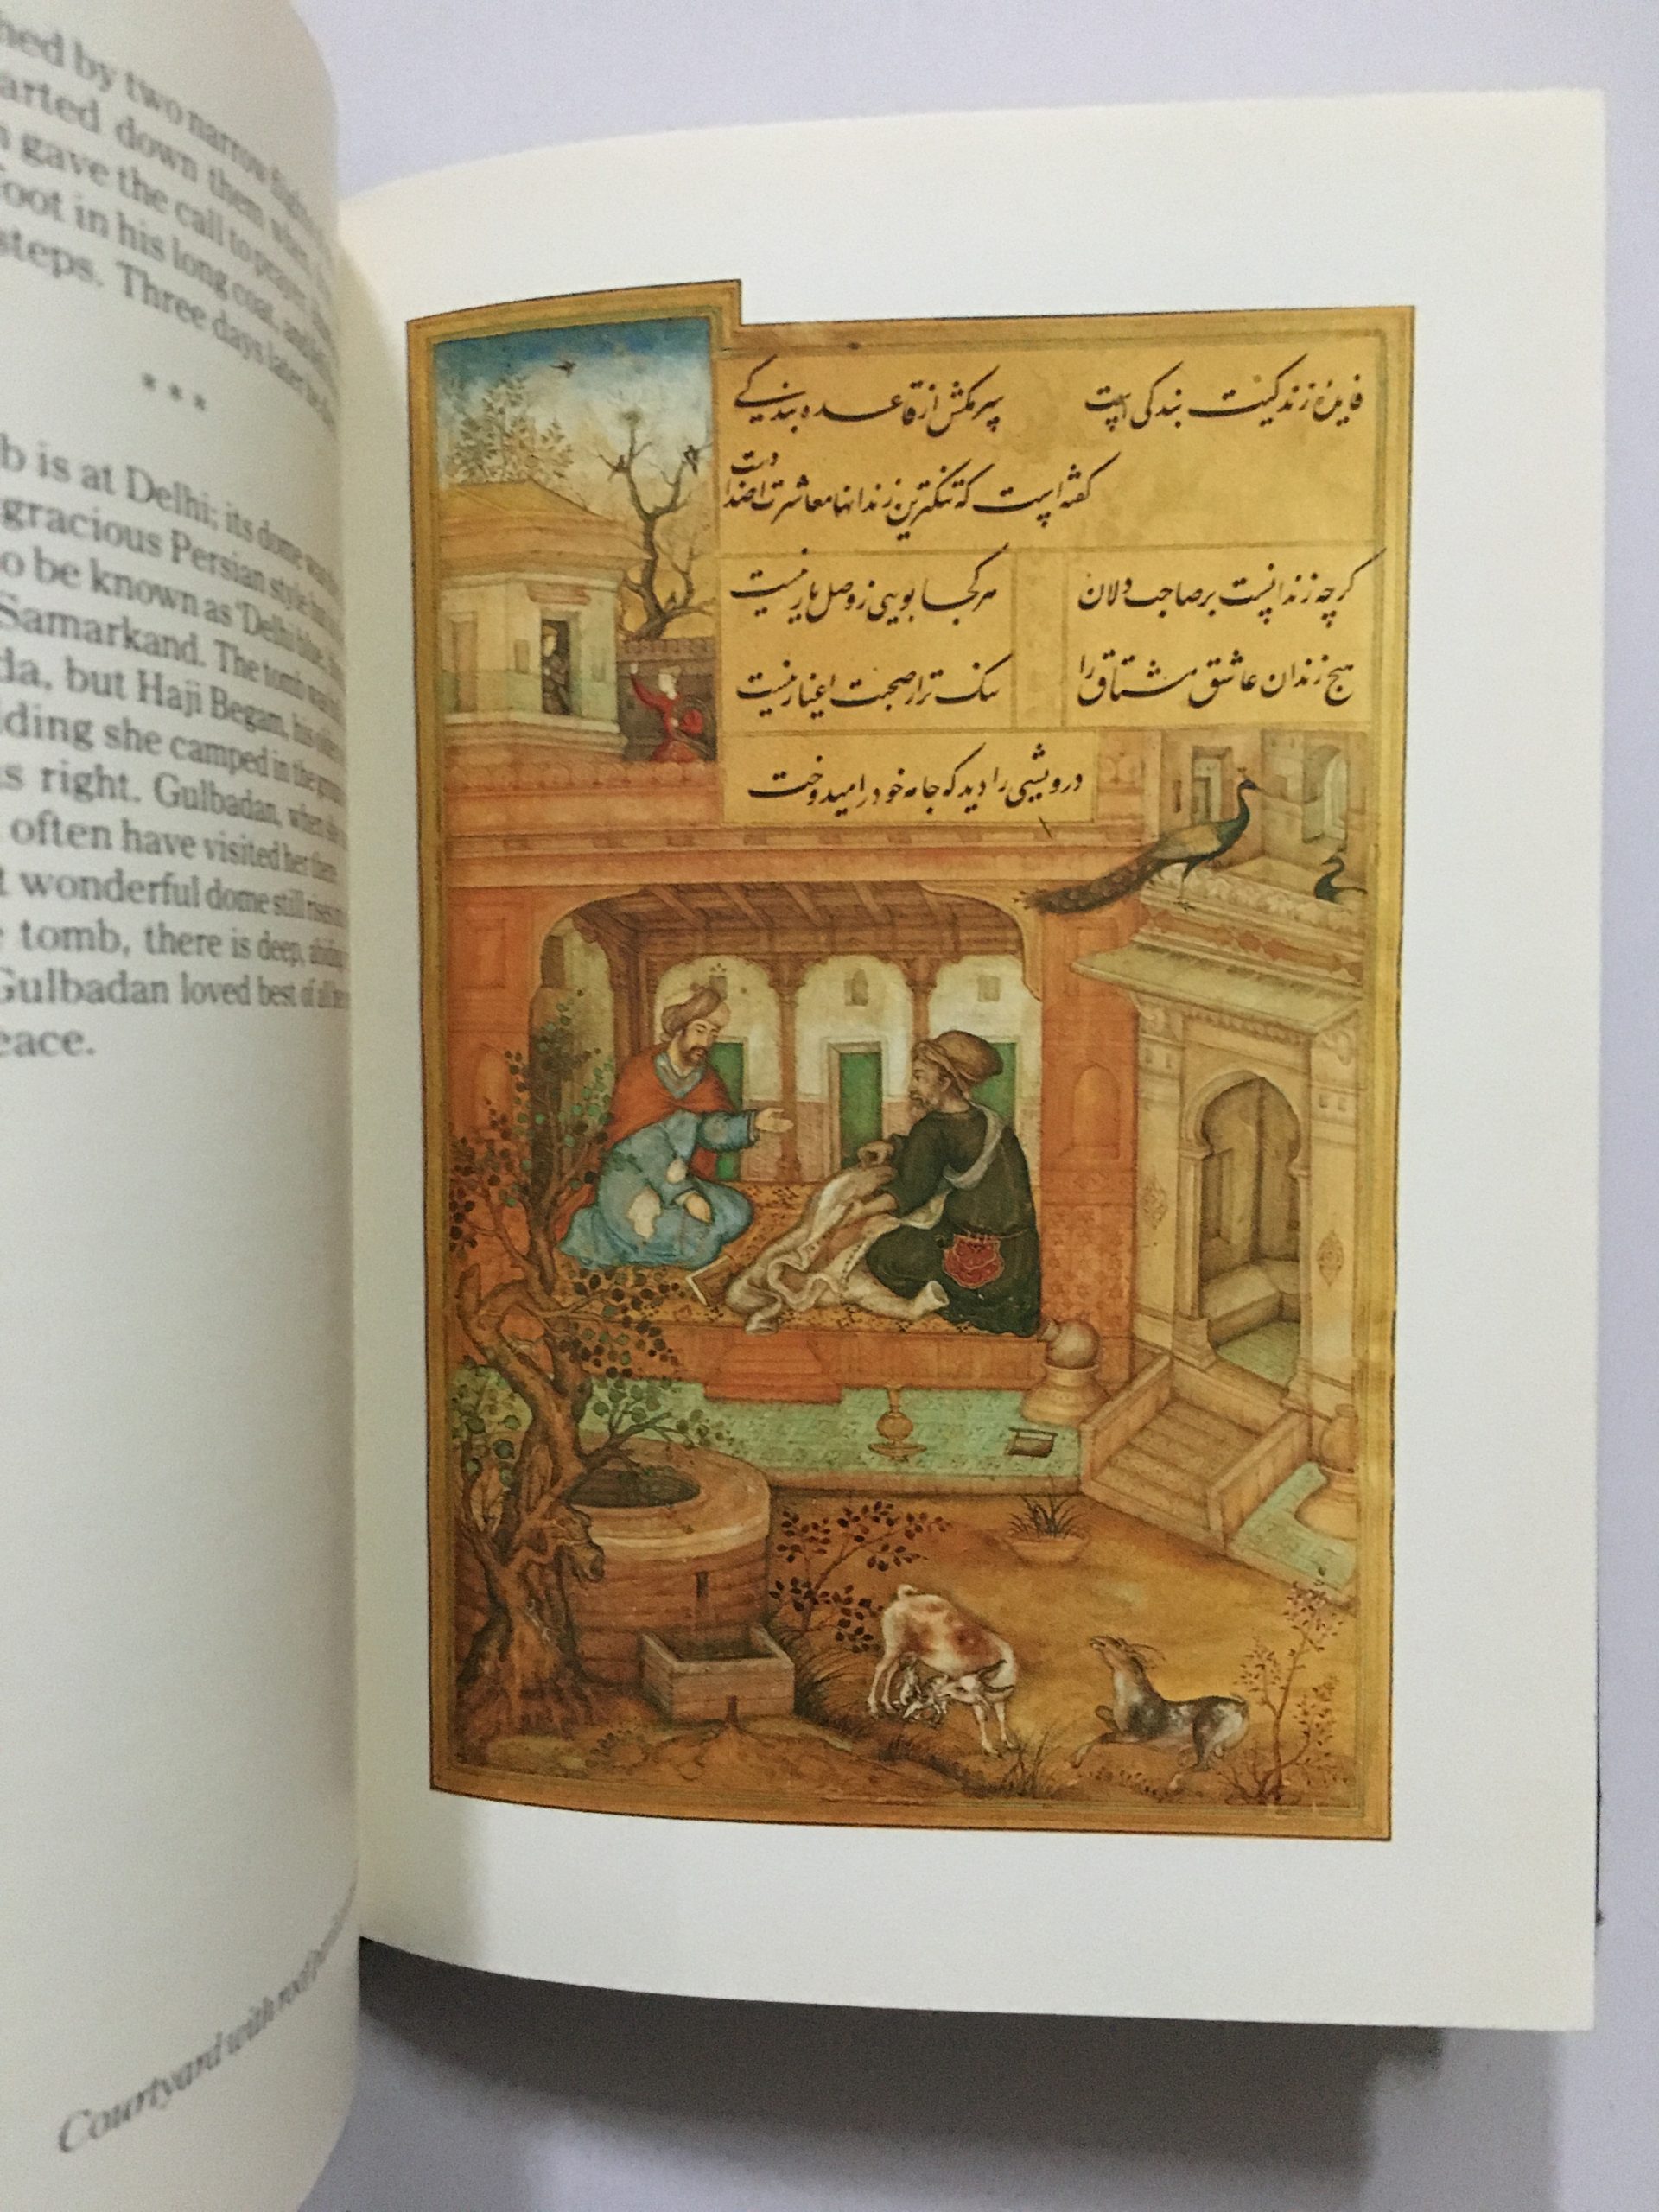 hed by two narrow
arted down them when
gave the call to prayer.
foot in his long coat, and
steps. Three days later he
***
b is at Delhi; its dome was
gracious Persian style but
o be known as 'Delhi blue.
Samarkand. The tomb was
da, but Haji Begam, his
lding she camped in the
s right. Gulbadan, when she
often have visited her there.
t wonderful dome still rises
e tomb, there is deep, abiding
Gulbadan loved best of all
eace.
Courtyard with roof
فایدهٔ زندگیت بندگی است سر مکش از قاعده بندگی
گفته است که تنگترین زندانها معاشرت اضداد است
گرچه زندانست بر صاحب دلان هر کجا بویی ز وصل یار نیست
هیچ زندان عاشق مشتاق را تنگ تر از صحبت اغیار نیست
درویشی را دید که جامه خود را میدوخت